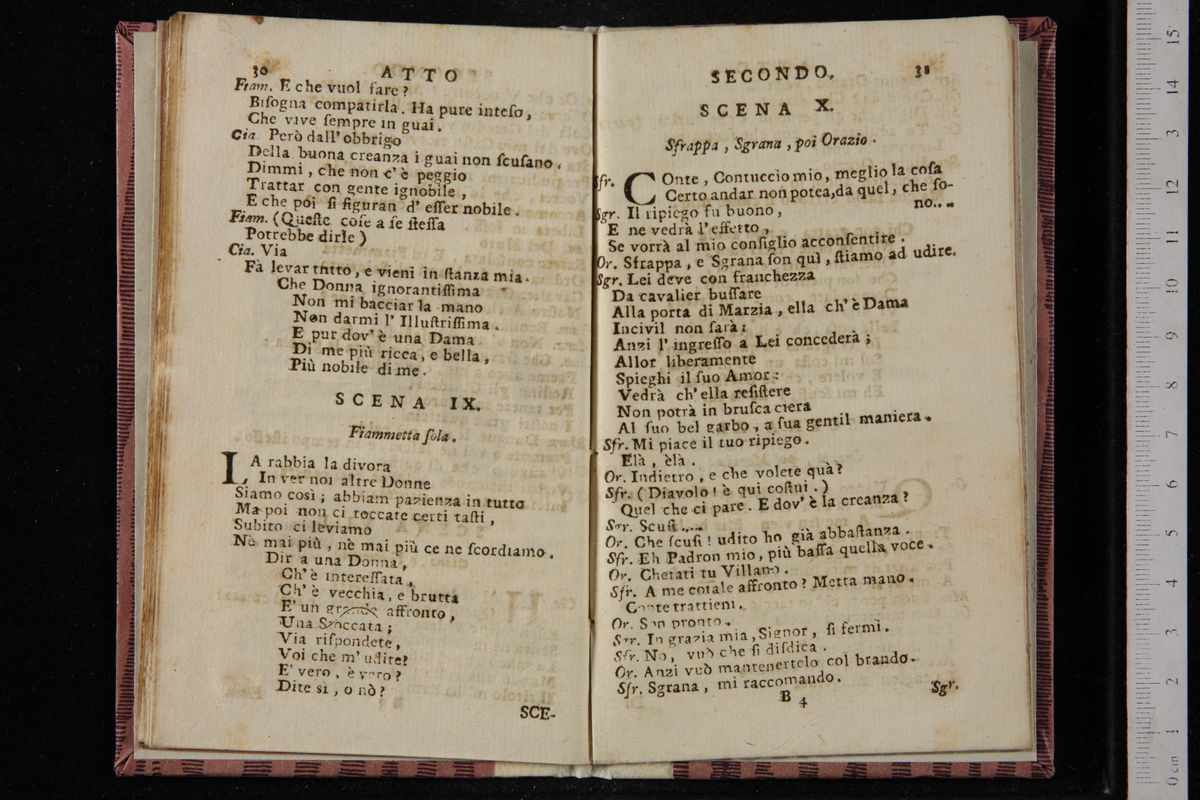 30 ATTO
Fiam. E che vuol fare?
Bisogna compatirla. Ha pure inteso,
Che vive sempre in guai.
Cia. Però dall'obbrigo
Della buona creanza i guai non scusano.
Dimmi, che non c'è peggio
Trattar con gente ignobile,
E che poi si figuran d' esser nobile.
Fiam. (Queste cose a se stessa
Potrebbe dirle)
Cia. Via
Fà levar tutto, e vieni in stanza mia.
Che Donna ignorantissima
Non mi bacciar la mano
Non darmi l' Illustrissima.
E pur dov' è una Dama
Di me più ricca, e bella,
Più nobile di me.
SCENA IX.
Fiammetta sola.
LA rabbia la divora
In ver noi altre Donne
Siamo così; abbiam pazienza in tutto
Ma poi non ci toccate certi tasti,
Subito ci leviamo
Nè mai più, nè mai più ce ne scordiamo.
Dir a una Donna,
Ch' è interessata,
Ch' è vecchia, e brutta
E' un grande affronto,
Una Stoccata;
Via rispondete,
Voi che m' udite?
E' vero, è vero?
Dite sì, o nò?
SCE-
SECONDO. 31
SCENA X.
Sfrappa, Sgrana, poi Orazio.
Sfr. COnte, Contuccio mio, meglio la cosa
Certo andar non potea, da quel, che so-
no...
Sgr. Il ripiego fu buono,
E ne vedrà l' effetto,
Se vorrà al mio consiglio acconsentire.
Or. Sfrappa, e Sgrana son quì, stiamo ad udire.
Sgr. Lei deve con franchezza
Da cavalier bussare
Alla porta di Marzia, ella ch' è Dama
Incivil non sarà:
Anzi l' ingresso a Lei concederà;
Allor liberamente
Spieghi il suo Amor:
Vedrà ch' ella resistere
Non potrà in brusca ciera
Al suo bel garbo, a sua gentil maniera.
Sfr. Mi piace il tuo ripiego.
Elà, èlà.
Or. Indietro, e che volete quà?
Sfr. (Diavolo! è qui costui.)
Quel che ci pare. E dov' è la creanza?
Sgr. Scusi....
Or. Che scusi! udito ho già abbastanza.
Sfr. Eh Padron mio, più bassa quella voce.
Or. Chetati tu Villano.
Sfr. A me cotale affronto? Metta mano.
Conte trattieni.
Or. Son pronto.
Sgr. In grazia mia, Signor, si fermi.
Sfr. No, vuò che si disdica.
Or. Anzi vuò mantenertelo col brando.
Sfr. Sgrana, mi raccomando.
B 4 Sgr.